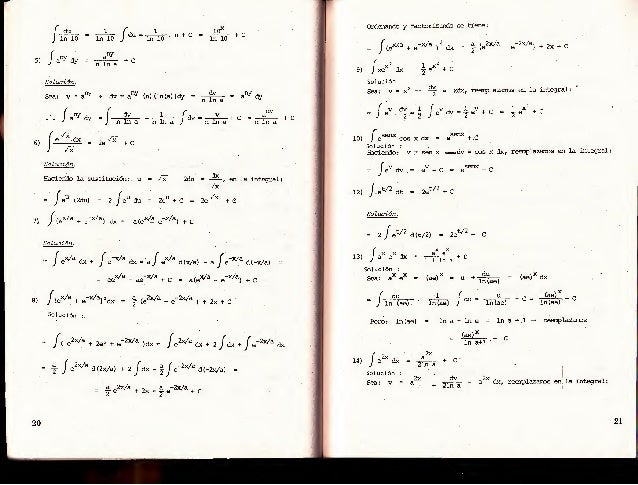 ∫ du/ln 10 = 1/ln 10 ∫ du = 1/ln 10 . u + C = 10^x/ln 10 + C
5) ∫ a^ny dy = a^ny/n ln a + C
Solución.
Sea: v = a^ny → dv = a^ny (n)(ln(a))dy ⇒ dv/n ln a = a^ny dy
∴ ∫ a^ny dy = ∫ dv/n ln a = 1/n ln a ∫ dv = v/n ln a + C = a^ny/n ln a + C
6) ∫ e^√x dx/√x = 2e^√x + C
Solución.
Haciendo la sustitución: u = √x 2du = dx/√x, en la integral:
= ∫ e^u (2du) = 2 ∫ e^u du = 2e^u + C = 2e^√x + C
7) ∫ (e^x/a + e^-x/a) dx = a(e^x/a - e^-x/a) + C
Solución.
= ∫ e^x/a dx + ∫ e^-x/a dx = a ∫ e^x/a d(x/a) - a ∫ e^-x/a d(-x/a) =
= ae^x/a - ae^-x/a + C = a(e^x/a - e^-x/a) + C
8) ∫ (e^x/a + e^-x/a)² dx = a/2 (e^2x/a - e^-2x/a) + 2x + C
Solución :
= ∫ (e^2x/a + 2e° + e^-2x/a)dx = ∫ e^2x/a dx + 2 ∫ dx + ∫ e^-2x/a dx
= a/2 ∫ e^2x/a d(2x/a) + 2 ∫ dx - a/2 ∫ e^-2x/a d(-2x/a) =
= a/2 e^2x/a + 2x - a/2 e^-2x/a + C
20
Ordenando y factorizando se tiene:
= ∫ (e^x/a + e^-x/a)² dx = a/2 (e^2x/a - e^-2x/a) + 2x + C
9) ∫ xe^x² dx = 1/2 e^x² + C
Solución
Sea: v = x² → dv/2 = xdx, reemplazamos en la integral:
= ∫ e^v . dv/2 = 1/2 ∫ e^v dv = 1/2 e^v + C = 1/2 e^x² + C
10) ∫ e^senx cos x dx = e^senx + C
Solución :
Haciendo: v = sen x → dv = cos x dx, reemplazamos en la integral:
= ∫ e^v dv = e^v + C = e^senx + C
12) ∫ e^t/2 dt = 2e^t/2 + C
Solución.
= 2 ∫ e^t/2 d(t/2) = 2e^t/2 + C
13) ∫ a^x e^x dx =
Solución :
Sea: a^x e^x = (ae)^x = u → du/ln(ae) = (ae)^x dx
= ∫ du/ln(ae) = 1/ln(ae) ∫ du = u/ln(ae) + C = (ae)^x/ln(ae) + C
Pero: ln(ae) = ln a + ln e = ln a + 1 → reemplazamos
= (ae)^x/ln a+1 + C
14) ∫ a^2x dx = a^2x/2ln a + C
Solución :
Sea: v = a^2x → dv/2ln a = a^2x dx, reemplazamos en la integral:
21